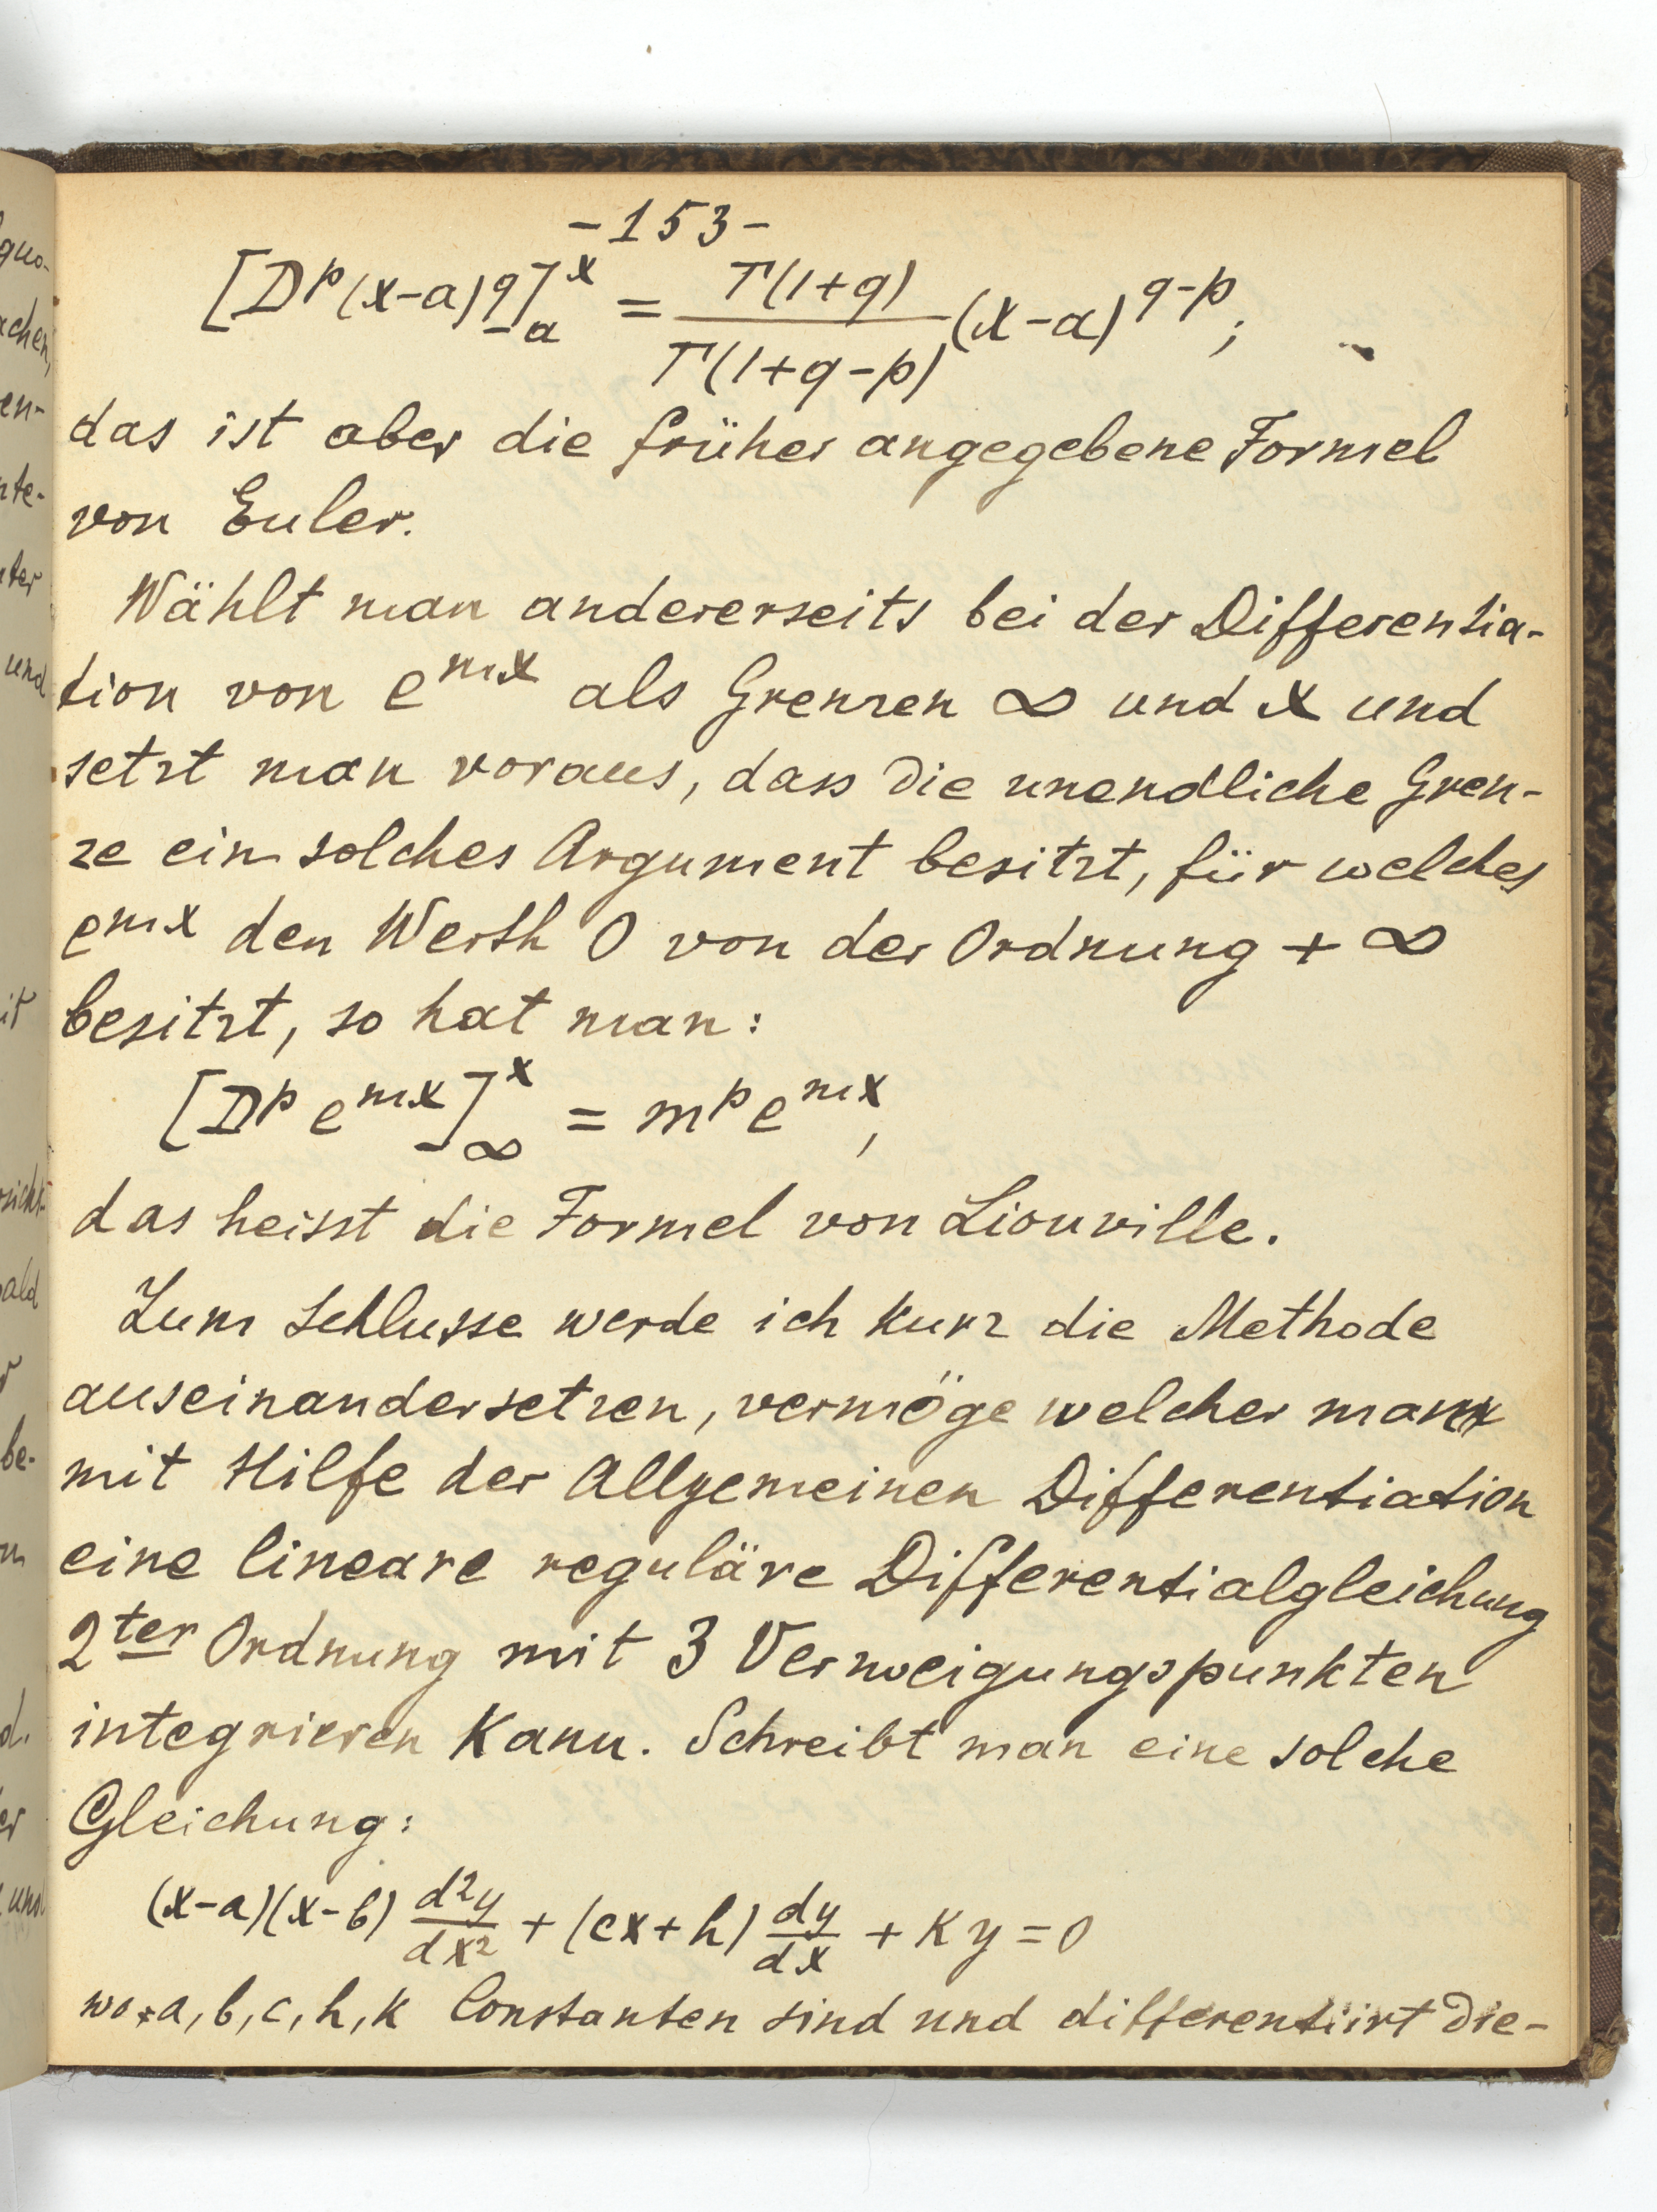 -153-
[D^p (x-a)^q]_a^x = Γ(1+q)/Γ(1+q-p) (x-a)^{q-p};
das ist aber die früher angegebene Formel
von Euler.
Wählt man andererseits bei der Differentia-
tion von e^{mx} als Grenzen ∞ und x und
setzt man voraus, dass die unendliche Gren-
ze ein solches Argument besitzt, für welches
e^{mx} den Werth 0 von der Ordnung + ∞
besitzt, so hat man:
[D^p e^{mx}]_∞^x = m^p e^{mx},
das heisst die Formel von Liouville.
Zum Schlusse werde ich kurz die Methode
auseinandersetzen, vermöge welcher man
mit Hilfe der Allgemeinen Differentiation
eine lineare reguläre Differentialgleichung
2^{ter} Ordnung mit 3 Verzweigungspunkten
integrieren kann. Schreibt man eine solche
Gleichung:
(x-a)(x-b) d²y/dx² + (cx+h) dy/dx + ky = 0
wo a, b, c, h, k Constanten sind und differentiirt die-
quo-
achen,
en-
nte-
nter
und
it
ald
be-
d.
er
und